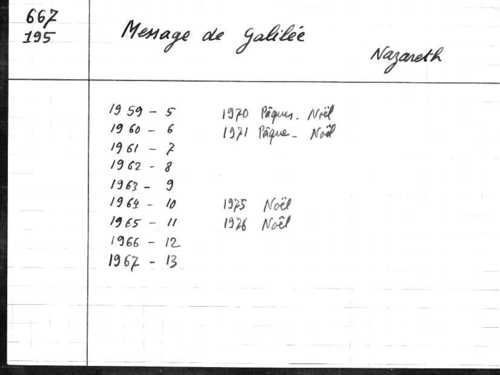 667
195
Message de Galilée
Nazareth
1959 - 5 1970 Pâques. Noël
1960 - 6 1971 Pâque - Noël
1961 - 7
1962 - 8
1963 - 9
1964 - 10 1975 Noël
1965 - 11 1976 Noël
1966 - 12
1967 - 13